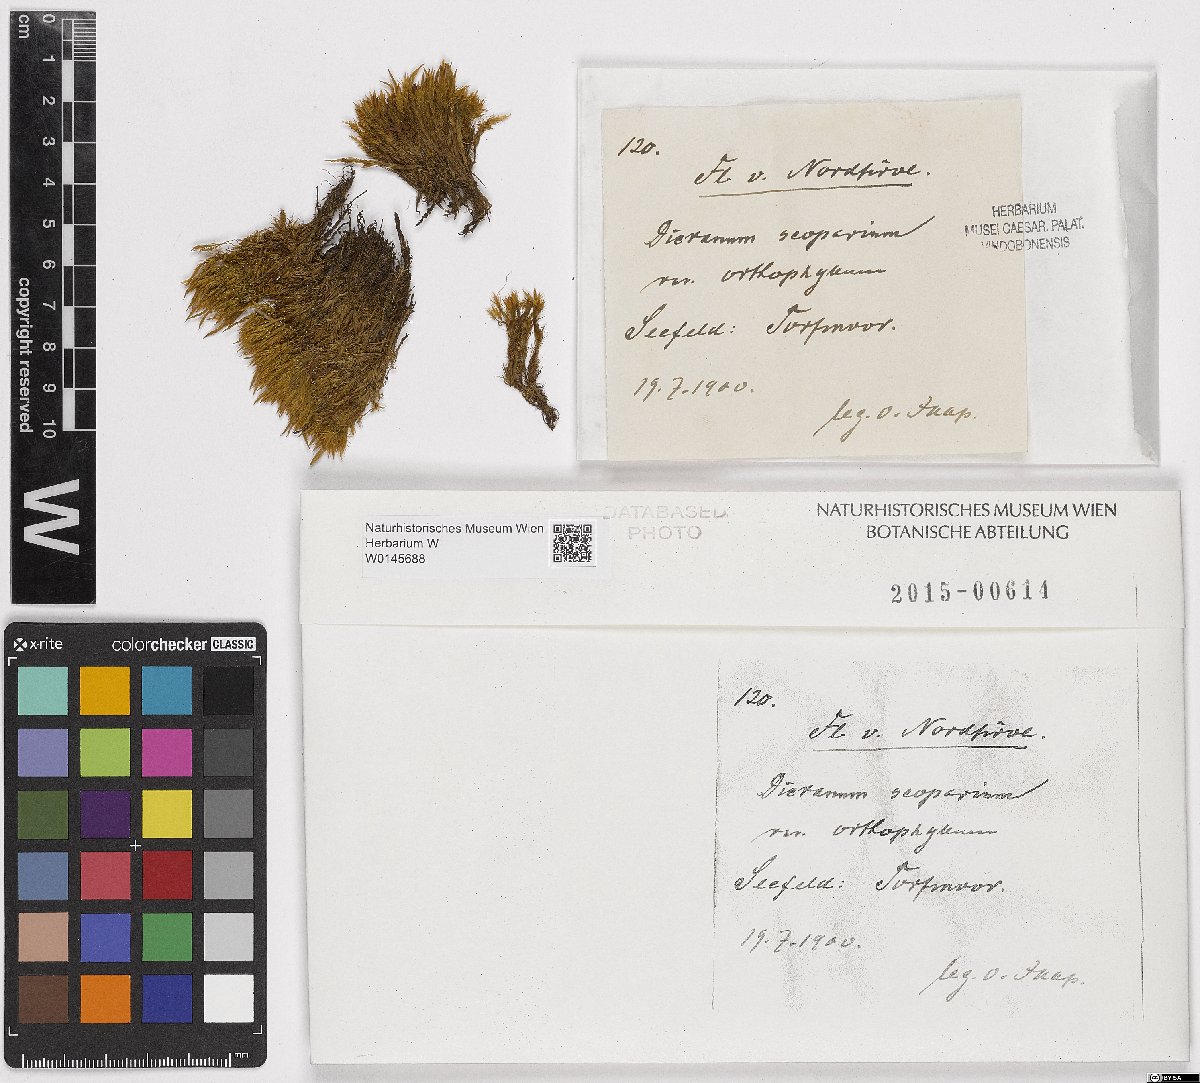 0 cm
1
2
3
4
5
6
7
8
9
10
copyright reserved
W
120.
Fl v. Nordtirol.
Dicranum scoparium
var. orthophyllum
Seefeld: Torfmoor.
19.7.1900.
leg. O. Jaap.
HERBARIUM
MUSEI CAESAR. PALAT.
VINDOBONENSIS
DATABASED
PHOTO
NATURHISTORISCHES MUSEUM WIEN
BOTANISCHE ABTEILUNG
Naturhistorisches Museum Wien
Herbarium W
W0145688
2015-00614
x-rite colorchecker CLASSIC
mm
120.
Fl v. Nordtirol.
Dicranum scoparium
var. orthophyllum
Seefeld: Torfmoor.
19.7.1900.
leg. O. Jaap.
CC BY SA